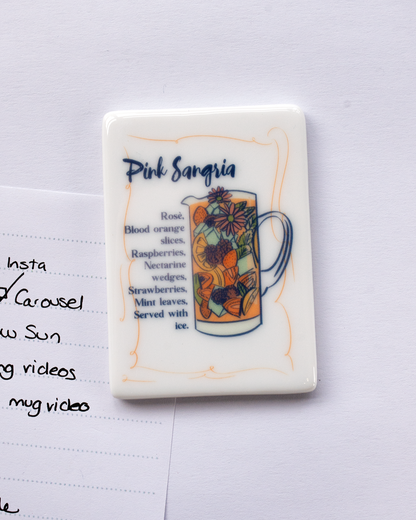 Pink Sangria
Rosé,
Blood orange
slices,
Raspberries,
Nectarine
wedges,
Strawberries,
Mint leaves,
Served with
ice.
Insta
Carousel
Sun
videos
mug video